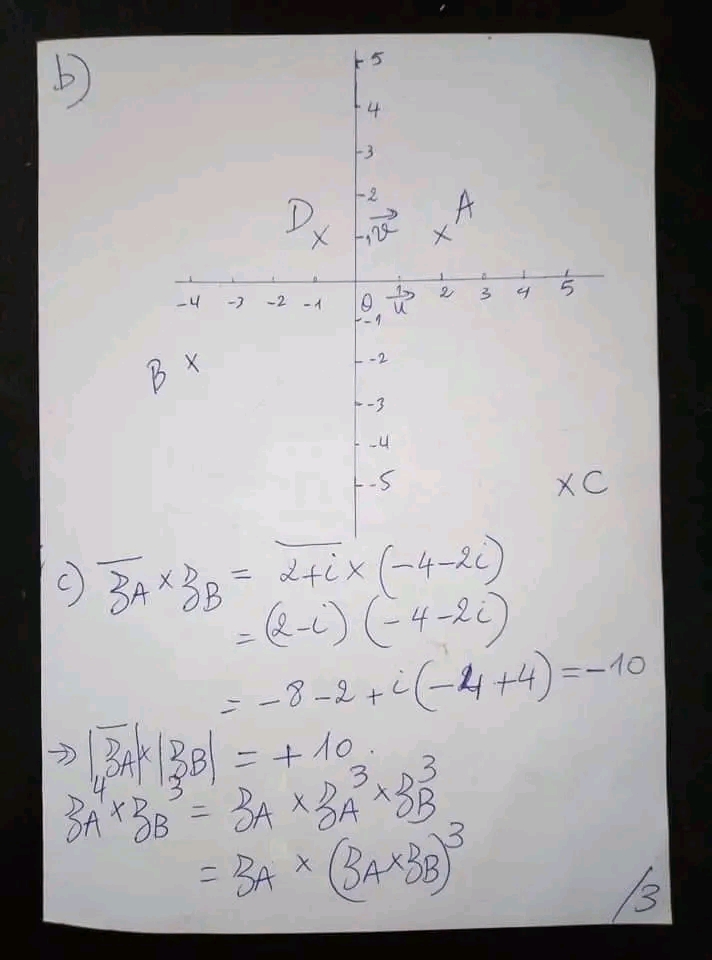 b)
5
4
3
D 2 A
× 1 \vec{v} ×
-4 -3 -2 -1 0 \vec{u} 1 2 3 4 5
-1
B × -2
-3
-4
-5 × C
c) \overline{z_A} × z_B = \overline{2+i} × (-4-2i)
= (2-i) (-4-2i)
= -8-2+i(-4+4) = -10
⇒ |\overline{z_A}| × |z_B| = +10.
z_A^4 × z_B^3 = z_A × z_A^3 × z_B^3
= z_A × (z_A × z_B)^3
/3